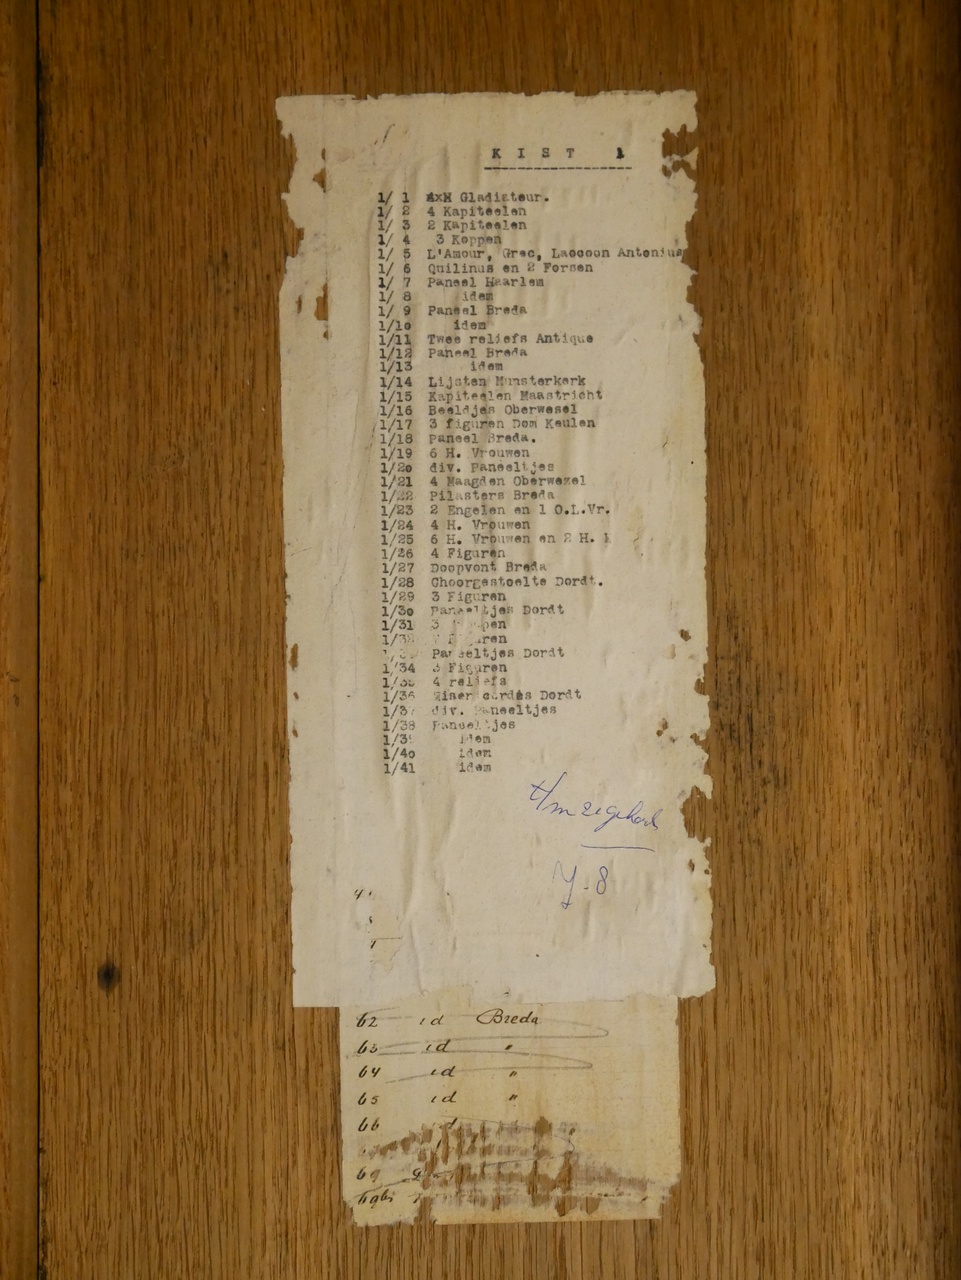 KIST 1
1/ 1 4xH Gladiateur.
1/ 2 4 Kapiteelen
1/ 3 2 Kapiteelen
1/ 4 3 Koppen
1/ 5 L'Amour, Grec, Laocoon Antonius
1/ 6 Quilinus en 2 Formen
1/ 7 Paneel Haarlem
1/ 8 idem
1/ 9 Paneel Breda
1/10 idem
1/11 Twee reliefs Antique
1/12 Paneel Breda
1/13 idem
1/14 Lijsten Munsterkerk
1/15 Kapiteelen Maastricht
1/16 Beeldjes Oberwesel
1/17 3 figuren Dom Keulen
1/18 Paneel Breda.
1/19 6 H. Vrouwen
1/20 div. Paneeltjes
1/21 4 Maagden Oberwesel
1/22 Pilasters Breda
1/23 2 Engelen en 1 O.L.Vr.
1/24 4 H. Vrouwen
1/25 6 H. Vrouwen en 2 H.
1/26 4 Figuren
1/27 Doopvont Breda
1/28 Choorgestoelte Dordt.
1/29 3 Figuren
1/30 Paneeltjes Dordt
1/31 3
Paneeltjes Dordt
1/34 3 Figuren
4 reliefs
1/36 Dordt
div. Paneeltjes
1/38 Paneeltjes
idem
1/40 idem
1/41 idem
J-8
62 id Breda
63 id "
64 id "
65 id "
66
69